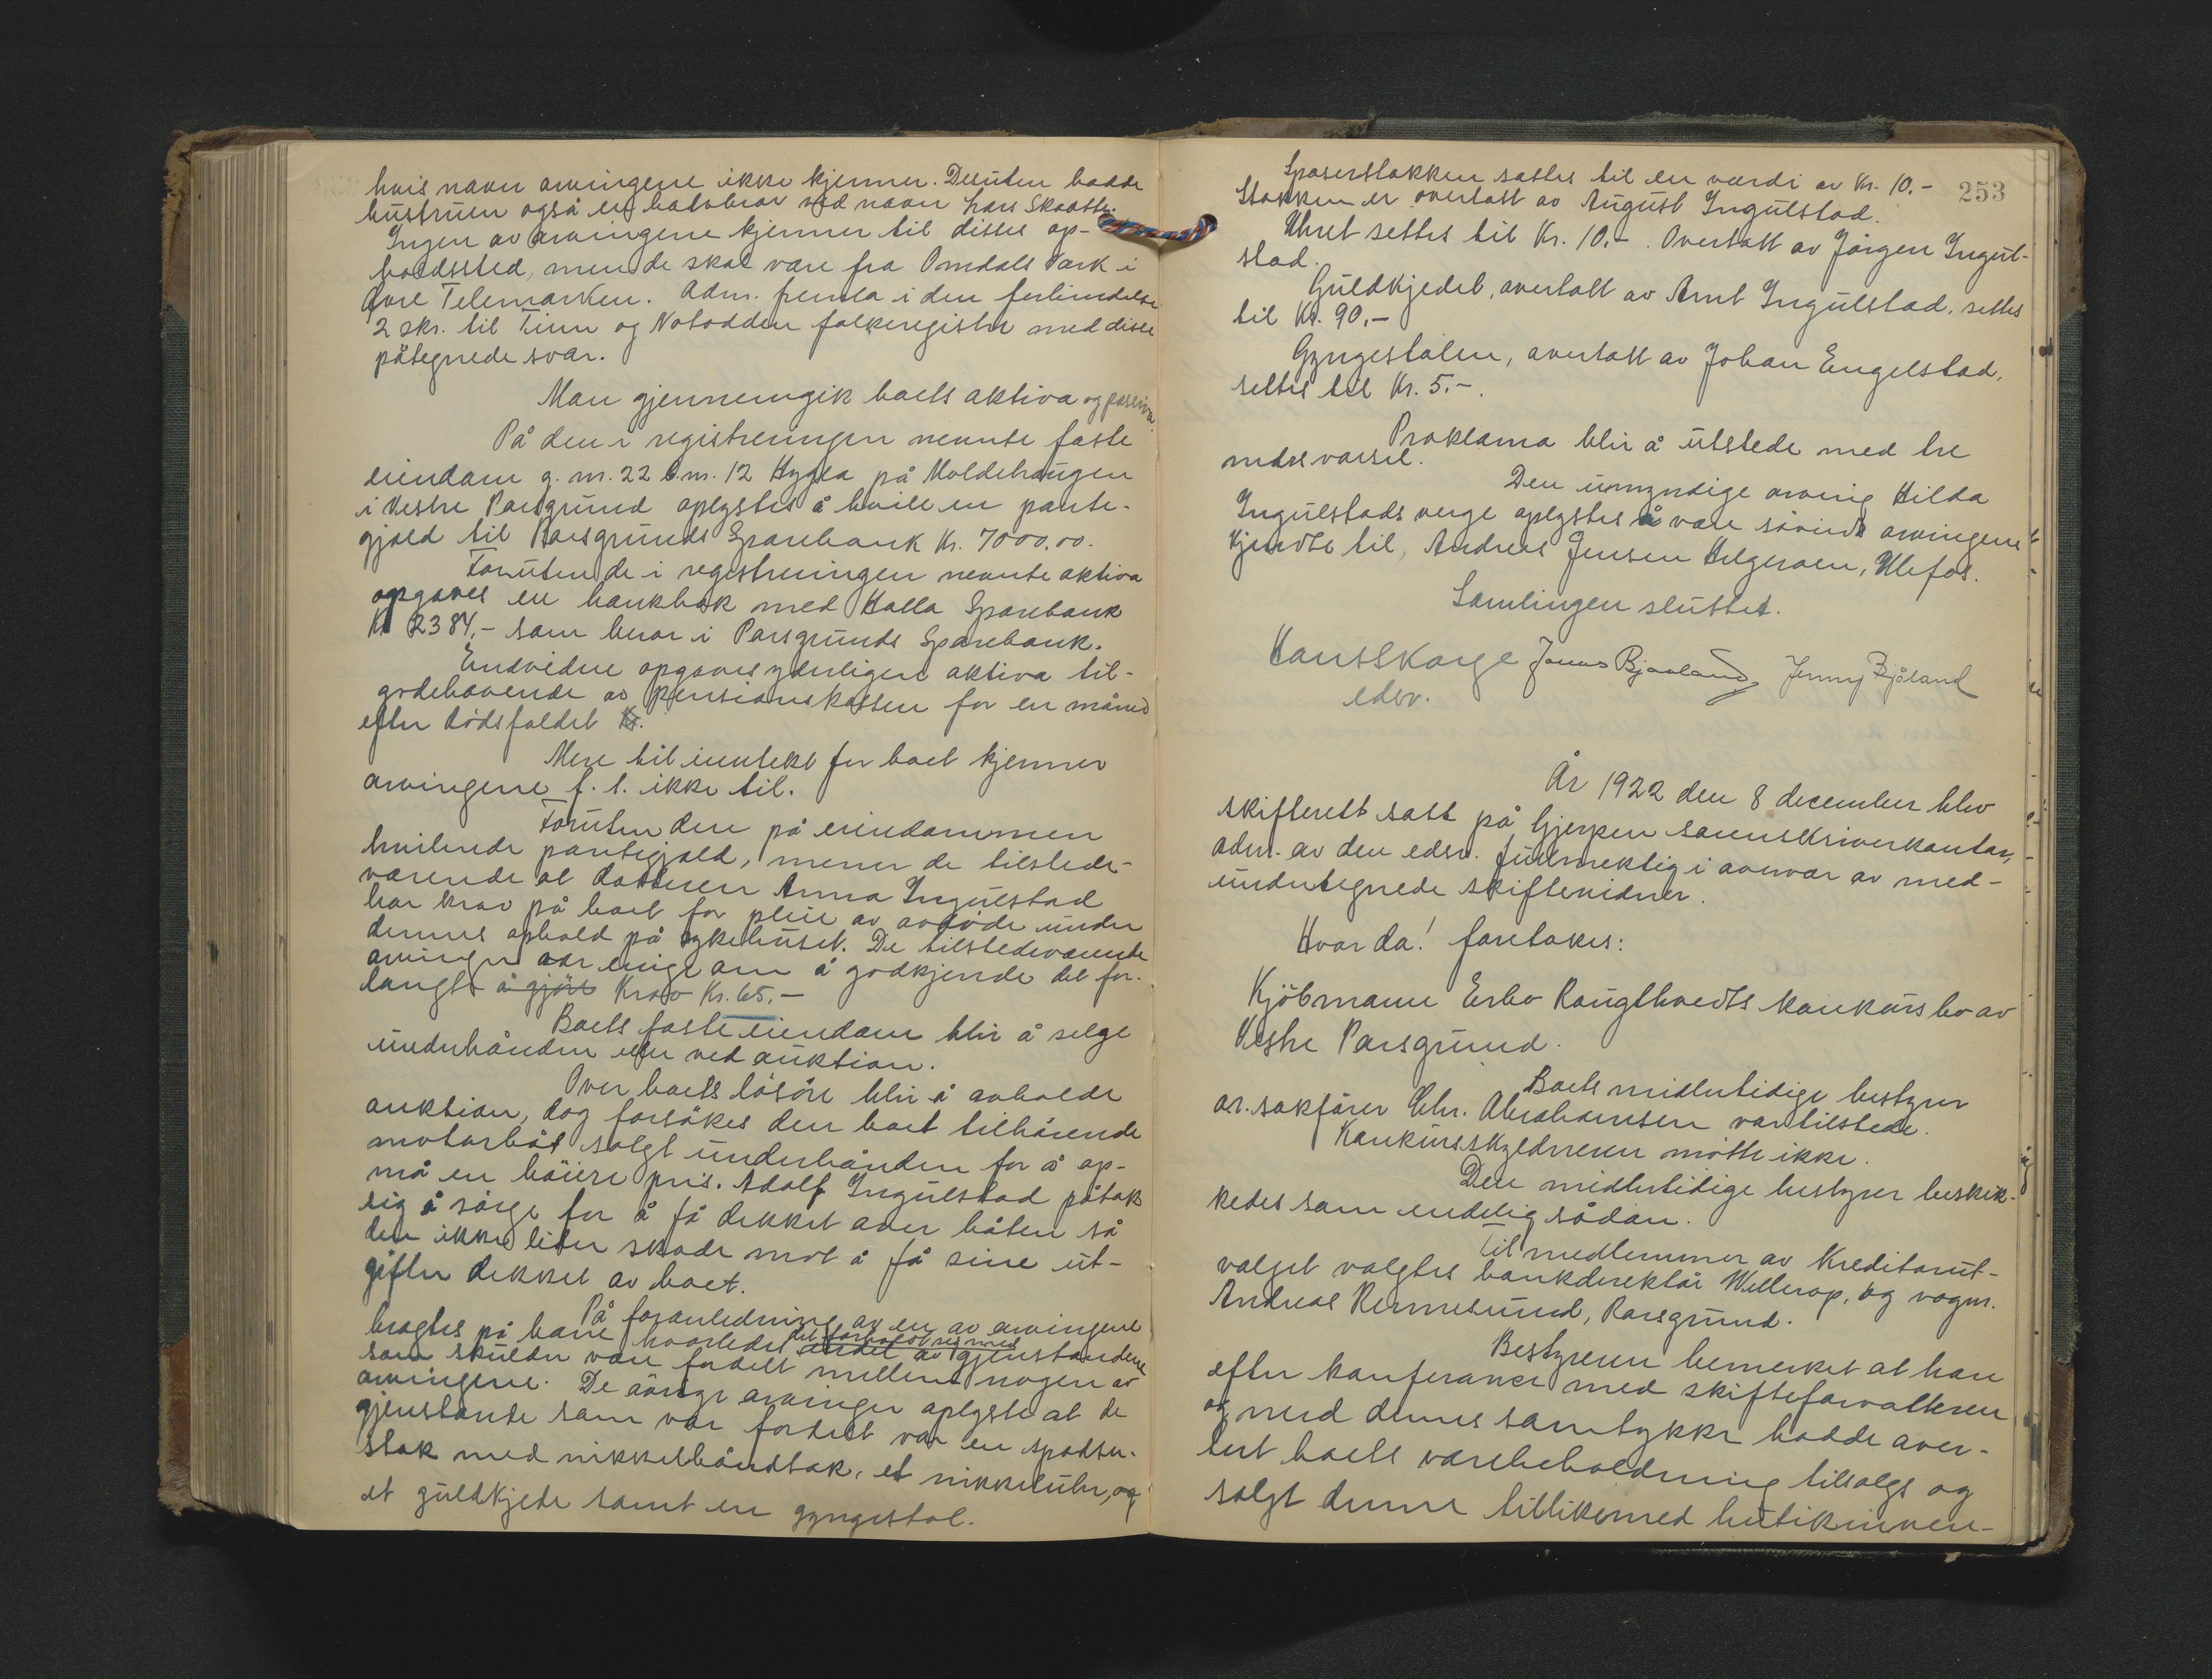 hvis navn arvingene ikke kjenner. Desuten hadde
hustruen også en halvbror ved navn Lars Skaatte.
Ingen av arvingene kjenner til disses op-
holdssted, men de skal være fra Omdals Værk i
Øvre Telemarken. Adm. fremla i den forbindelse
2 skr. til Tinn og Notodden folkeregister med disse
påtegnede svar.
Man gjennemgik boets aktiva og passiva.
På den i registreringen nevnte faste
eiendom g. nr. 22 b. nr. 12 Hygga på Moldehaugen
i Vestre Porsgrund oplystes å hvile en pante-
gjæld til Porsgrunds Sparebank Kr. 7000.00.
Foruten de i registreringen nevnte aktiva
opgaves en bankbok med Holla Sparebank
Kr 2384,- som beror i Porsgrunds Sparebank.
Endvidere opgaves yderligere aktiva til-
godehavende av pensionskassen for en måned
efter dødsfaldet Kr.
Mere til inntekt for boet kjenner
arvingene f. t. ikke til.
Foruten den på eiendommen
hvilende pantegjæld, mener de tilstede-
værende at datteren Anna Ingulstad
har krav på boet for pleie av avdøde under
dennes ophold på sykehuset. De tilstedeværende
arvinger var enige om å godkjende det for-
langte å gjöre Krav Kr. 65.-
Boets faste eiendom blir å selge
underhånden eller ved auktion.
Over boets lösöre blir å avholde
auktion, dog forsökes den boet tilhörende
motorbåt solgt underhånden for å op-
nå en höiere pris. Adolf Ingulstad påtok
sig å sörge for å få dekket over båten så
den ikke lider skade mot å få sine ut-
gifter dekket av boet.
På foranledning av en av arvingene
bragtes på bane hvorledes det forholdt sig med
endel av gjenstandene
som skulde være fordelt mellem nogen av
arvingene. De övrige arvinger oplyste at de
gjenstande som var fordelt var en spadser-
stok med nikkelhåndtak, et nikkeluhr, og
et guldkjede samt en gyngestol.
253
Spaserstokken sattes til en værdi av Kr. 10.-
Stokken er overtatt av August Ingulstad.
Uhret settes til Kr. 10.-. Overtatt av Jörgen Ingul-
stad.
Guldkjedet, overtatt av Arnt Ingulstad, settes
til Kr. 90.-
Gyngestolen, overtatt av Johan Engelstad,
settes til Kr. 5.-.
Proklama blir å utstede med tre
mdrs varsel.
Den umyndige arving Hilda
Ingulstads verge oplystes å være såvidt arvingene
kjendte til, Andreas Jensen Helgeroen, Ulefos.
Samlingen sluttet.
Hans Skorge Jonas Bjaaland Jenny Bjåland
edsv.
År 1922 den 8 december blev
skifterett satt på Gjerpen sorenskriverkontor,
adm. av den edsv. fullmektig i nærvær av med-
undertegnede skiftevidner.
Hvor da! foretokes:
Kjöbmann Erbo Rougthvedts konkursbo av
Vestre Porsgrund.
Boets midlertidige bestyrer
or. sakförer Chr. Abrahamsen var tilstede.
Konkursskyldneren mötte ikke.
Den midlertidige bestyrer beskik-
kedes som endelig sådan.
Til medlemmer av Kreditorut-
valget valgtes bankdirektör Wellerop, og vogm.
Andreas Rennesund, Porsgrund.
Bestyreren bemerket at han
efter konferance med skifteforvalteren
og med dennes samtykke hadde aver-
tert boets varebeholdning tilsalgs og
solgt denne tillikemed butikinven-